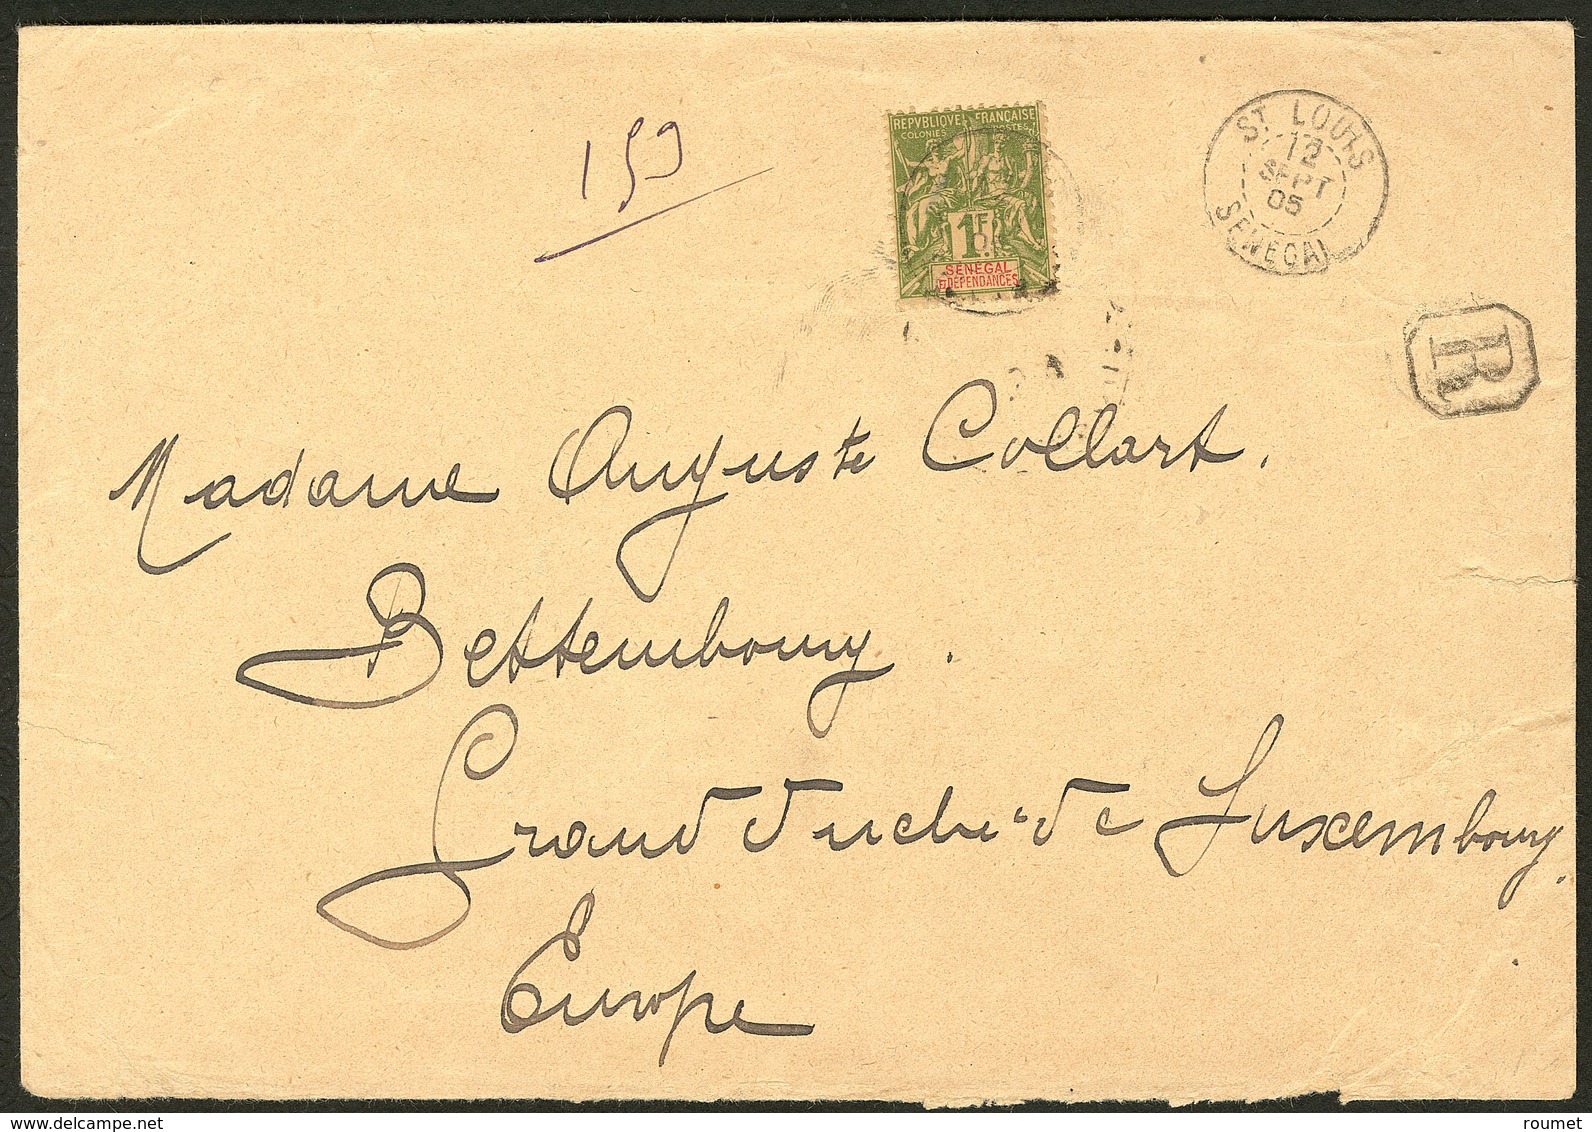 159
REPVBLIQVE FRANÇAISE
COLONIES POSTES
1F
SENEGAL
ET DÉPENDANCES
ST LOUIS
12
SEPT
05
SENEGAL
R
Madame Auguste Collart.
Bettembourg.
Grand Duché de Luxembourg.
Europe
roumet - delcampe.net